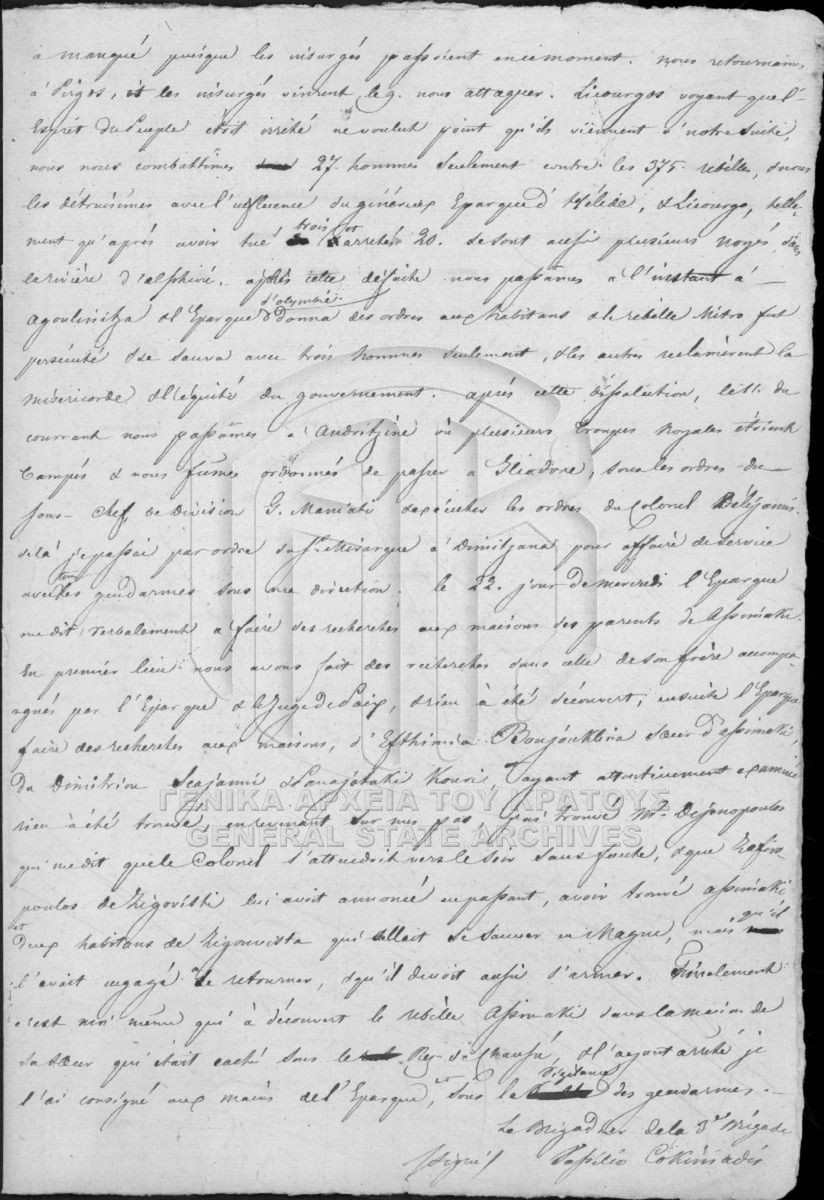 a manqué puisque les insurgés passoient en ce moment. nous retournames
à Pirgos, et les insurgés vinrent le 9. nous attaquer. Licourgos voyant que l'
Esprit du Peuple étoit irrité ne voulut point qu'ils viennent à notre suite,
nous nous combattimes 27. hommes seulement contre les 375 rebelles, & nous
les détruisimes avec l'influence du généreux Eparque d'Hélide, & Licourgo, telle-
ment qu'après avoir tué trois et arreté 20. se sont aussi plusieurs noyés dans
la rivière d'alphée. après cette défaite nous passâmes à l'instant à
Agoulinitza & l'Eparque d'olympie donna des ordres aux habitans & le rebelle Mitro fut
persécuté & se sauva avec trois hommes seulement, & les autres reclamèrent la
miséricorde & l'équité du gouvernement. après cette dissolution, le 11. du
courrant nous passâmes à Andritzine où plusieurs troupes Royales étoient
Campés & nous fumes ordonnés de passer à sous les ordres du
sous-chef de division G. Maniati exécuter les ordres du Colonel
delà je passai par ordre du Sr. Mirarque à Dimitzana pour affaire de service
avec tous les gendarmes sous ma direction. le 22. jour de mercredi l'Eparque
me dit verbalement à faire des recherches aux maisons des parents de Assimaki.
En premier lieu nous avons fait des recherches dans celle de son frère accompa-
gnés par l'Eparque & le Juge de Paix, & rien à été découvert, ensuite l'Eparque
faire des recherches aux maisons, d'Efthimia Boujoukliva sœur d'assimaki,
du Dimitriou & Panajotaki ayant attentivement examiné
rien à été trouvé, en revenant sur mes pas, j'ai trouvé Mr. Dejenopoulos
qui me dit que le Colonel s'attendoit vers le soir sans faute, & que Zafiro-
poulos de Zigovisti lui avoit annoncé en passant, avoir trouvé assimaki
et deux habitans de Zigouvista qui allait se sauver en Magne, mais qu'il
l'avait engagé de retourner, & qu'il devoit aussi s'armer. Finalement
c'est moi même qui à découvert le rebèlle Assimaki dans la maison de
sa sœur qui était caché sous le Rez de chaussé, & l'ayant arreté je
l'ai consigné aux mains de l'Eparque, et sous la vigilance des gendarmes.
Le Brigadier de la 3e Brigade
(signé) Vassilio Cokiniadis
ΓΕΝΙΚΑ ΑΡΧΕΙΑ ΤΟΥ ΚΡΑΤΟΥΣ
GENERAL STATE ARCHIVES